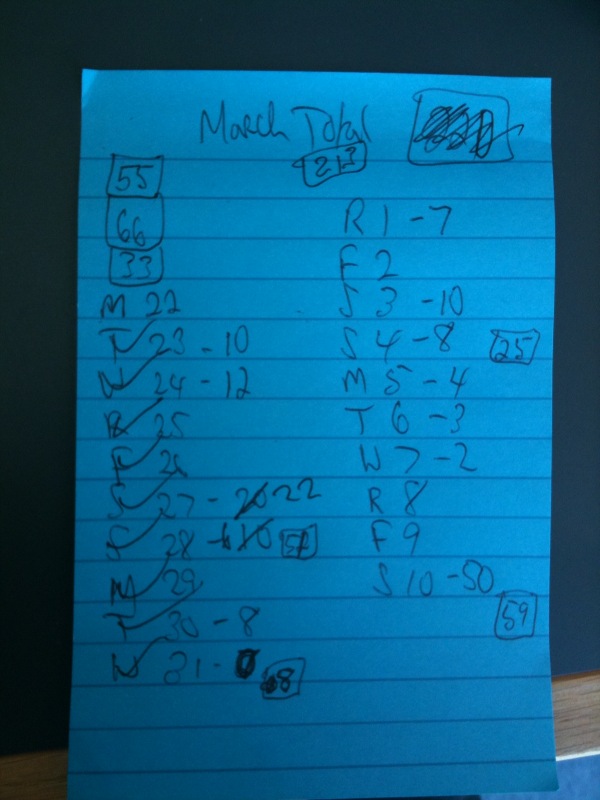 March Total
213
55
66
33
M 22
T 23 - 10
W 24 - 12
R 25
F 26
S 27 - 20 22
S 28 - 10
M 29
T 30 - 8
W 31 -
8
R 1 - 7
F 2
S 3 - 10
S 4 - 8 25
M 5 - 4
T 6 - 3
W 7 - 2
R 8
F 9
S 10 - 50
59